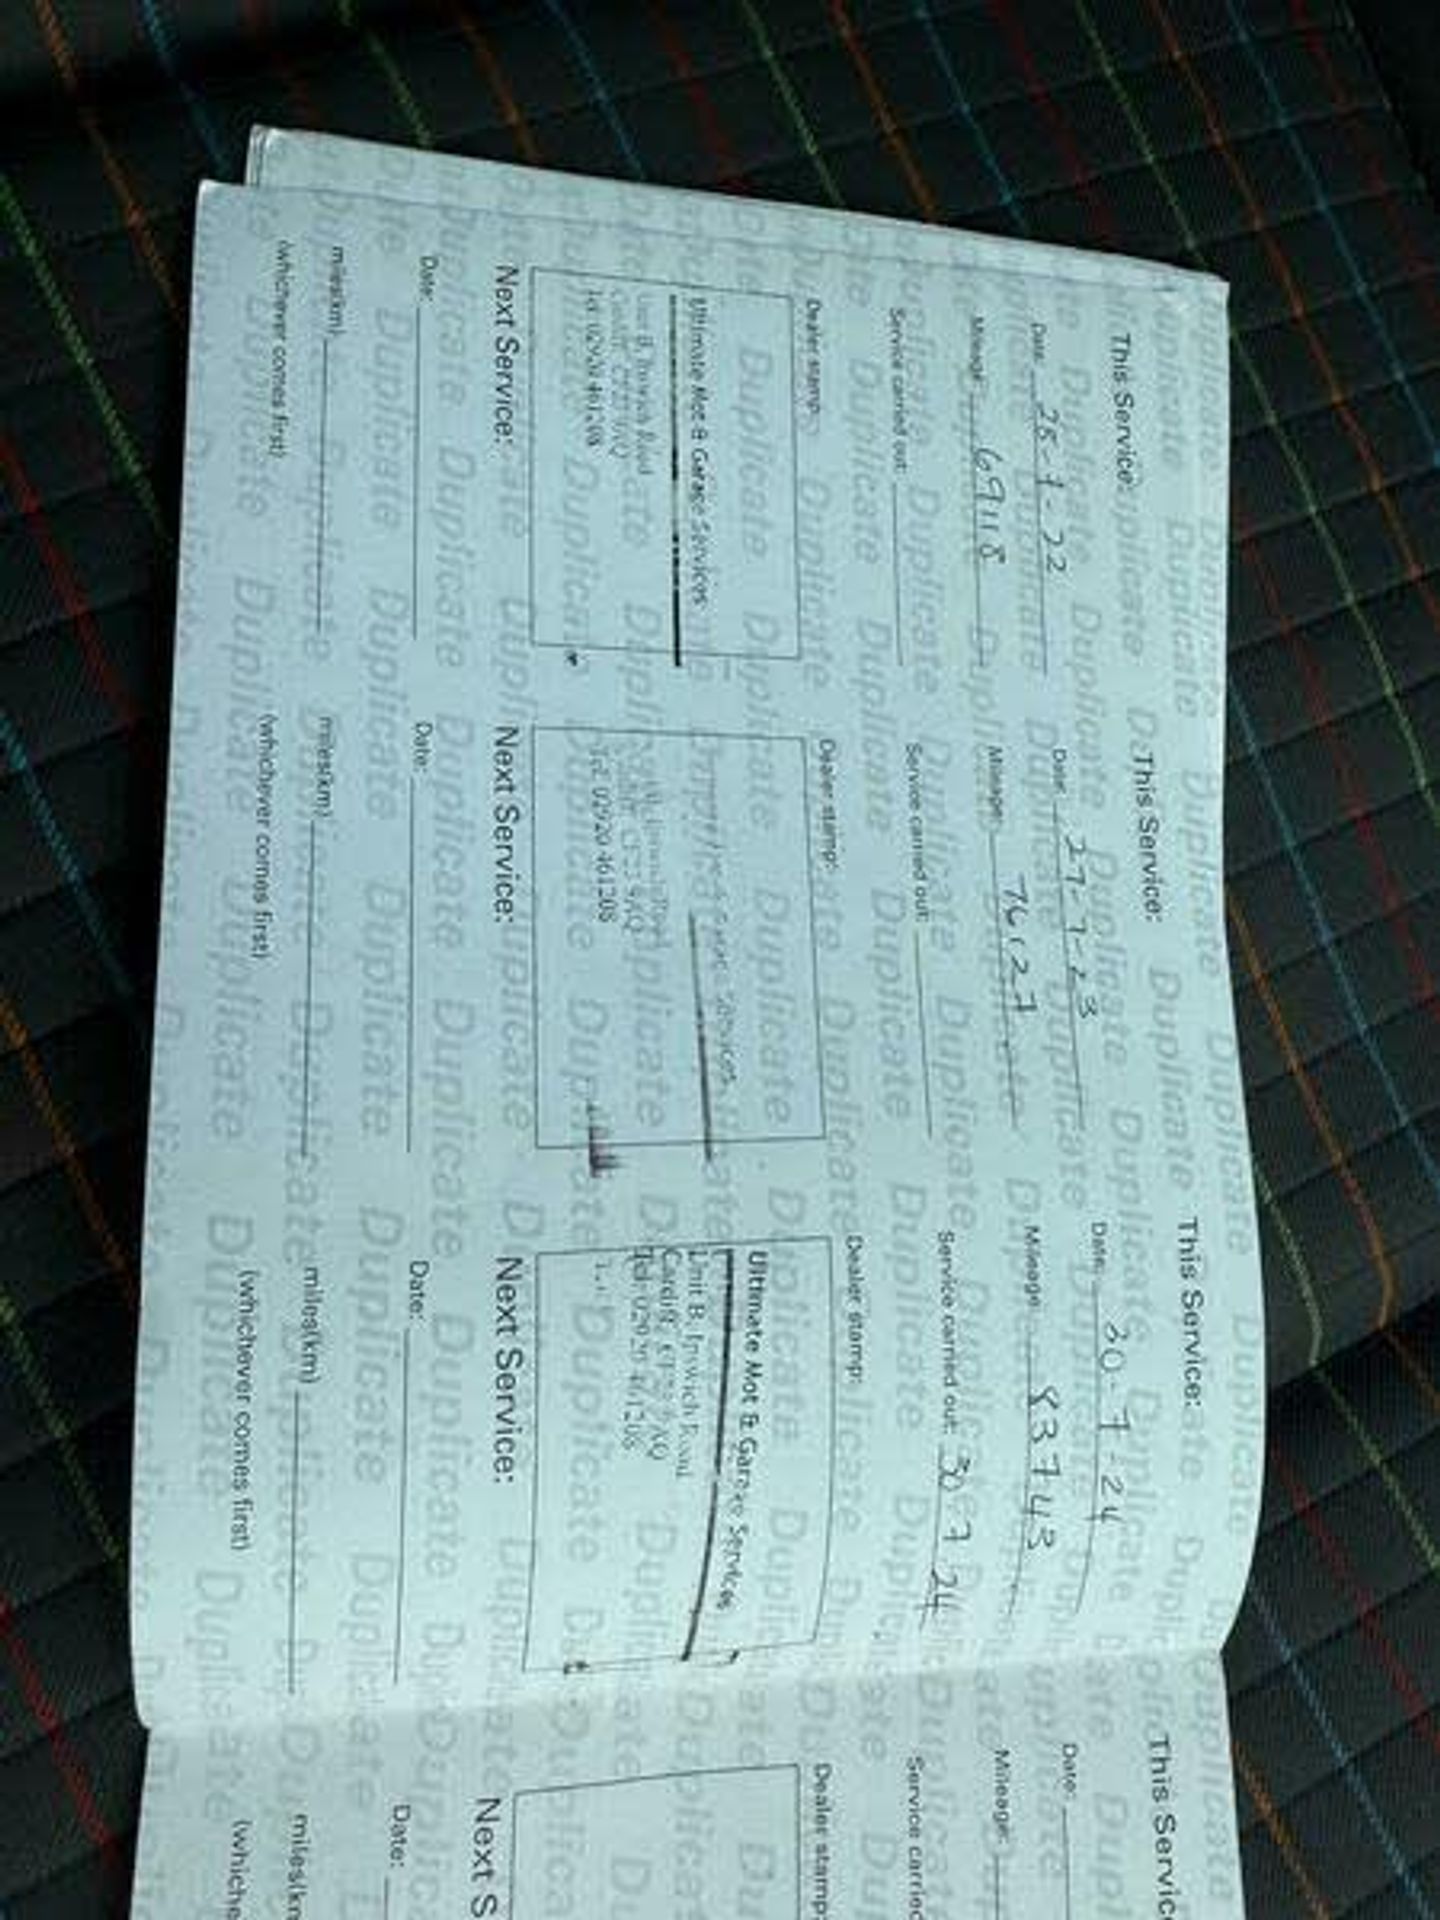 This Service:
Date: 25-7-22
Mileage: 69118
Service carried out:
Dealer stamp:
Ultimate Mot & Garage Services
Unit B, Ipswich Road
Cardiff, CF23 9AQ
Tel: 02920 461208
Next Service:
Date:
miles(km)
(whichever comes first)
This Service:
Date: 27-7-23
Mileage: 76127
Service carried out:
Dealer stamp:
Services
Ipswich Road
CF23 9AQ
Tel: 02920 461208
Next Service:
Date:
miles(km)
(whichever comes first)
This Service:
Date: 30-7-24
Mileage: 83743
Service carried out: 30 7 24
Dealer stamp:
Ultimate Mot & Garage Services
Unit B, Ipswich Road
Cardiff, CF23 9AQ
Tel: 02920 461208
Next Service:
Date:
miles(km)
(whichever comes first)
This Service
Date:
Mileage:
Service carried
Dealer stamp:
Next S
Date:
miles(km
(whiche
Duplicate Duplicate Duplicate Duplicate